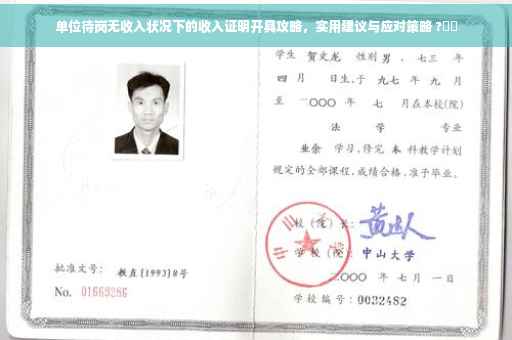 单位待岗无收入状况下的收入证明开具攻略，实用建议与应对策略 ?
学生 贺文龙 性别 男 . 七三 年
四 月 日生,于 九七 年 九 月
至 二000 年 七 月在本校(院)
法 学 专业
业余 学习,修完 本 科教学计划
规定的全部课程,成绩合格,准予毕业。
校 (院) 长:
学 校 (院): 中山大学
二000 年 七 月 一 日
批准文号: 教直 (1993)8号
No. 01669286
学校编号: 0032482